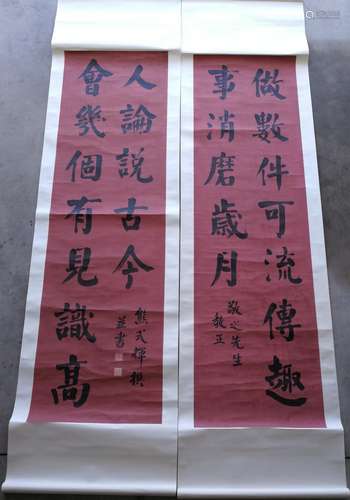 做數件可流傳趣
事消磨歲月
敬之先生
教正
會幾個有見識高
人論說古今
熊式輝撰
並書